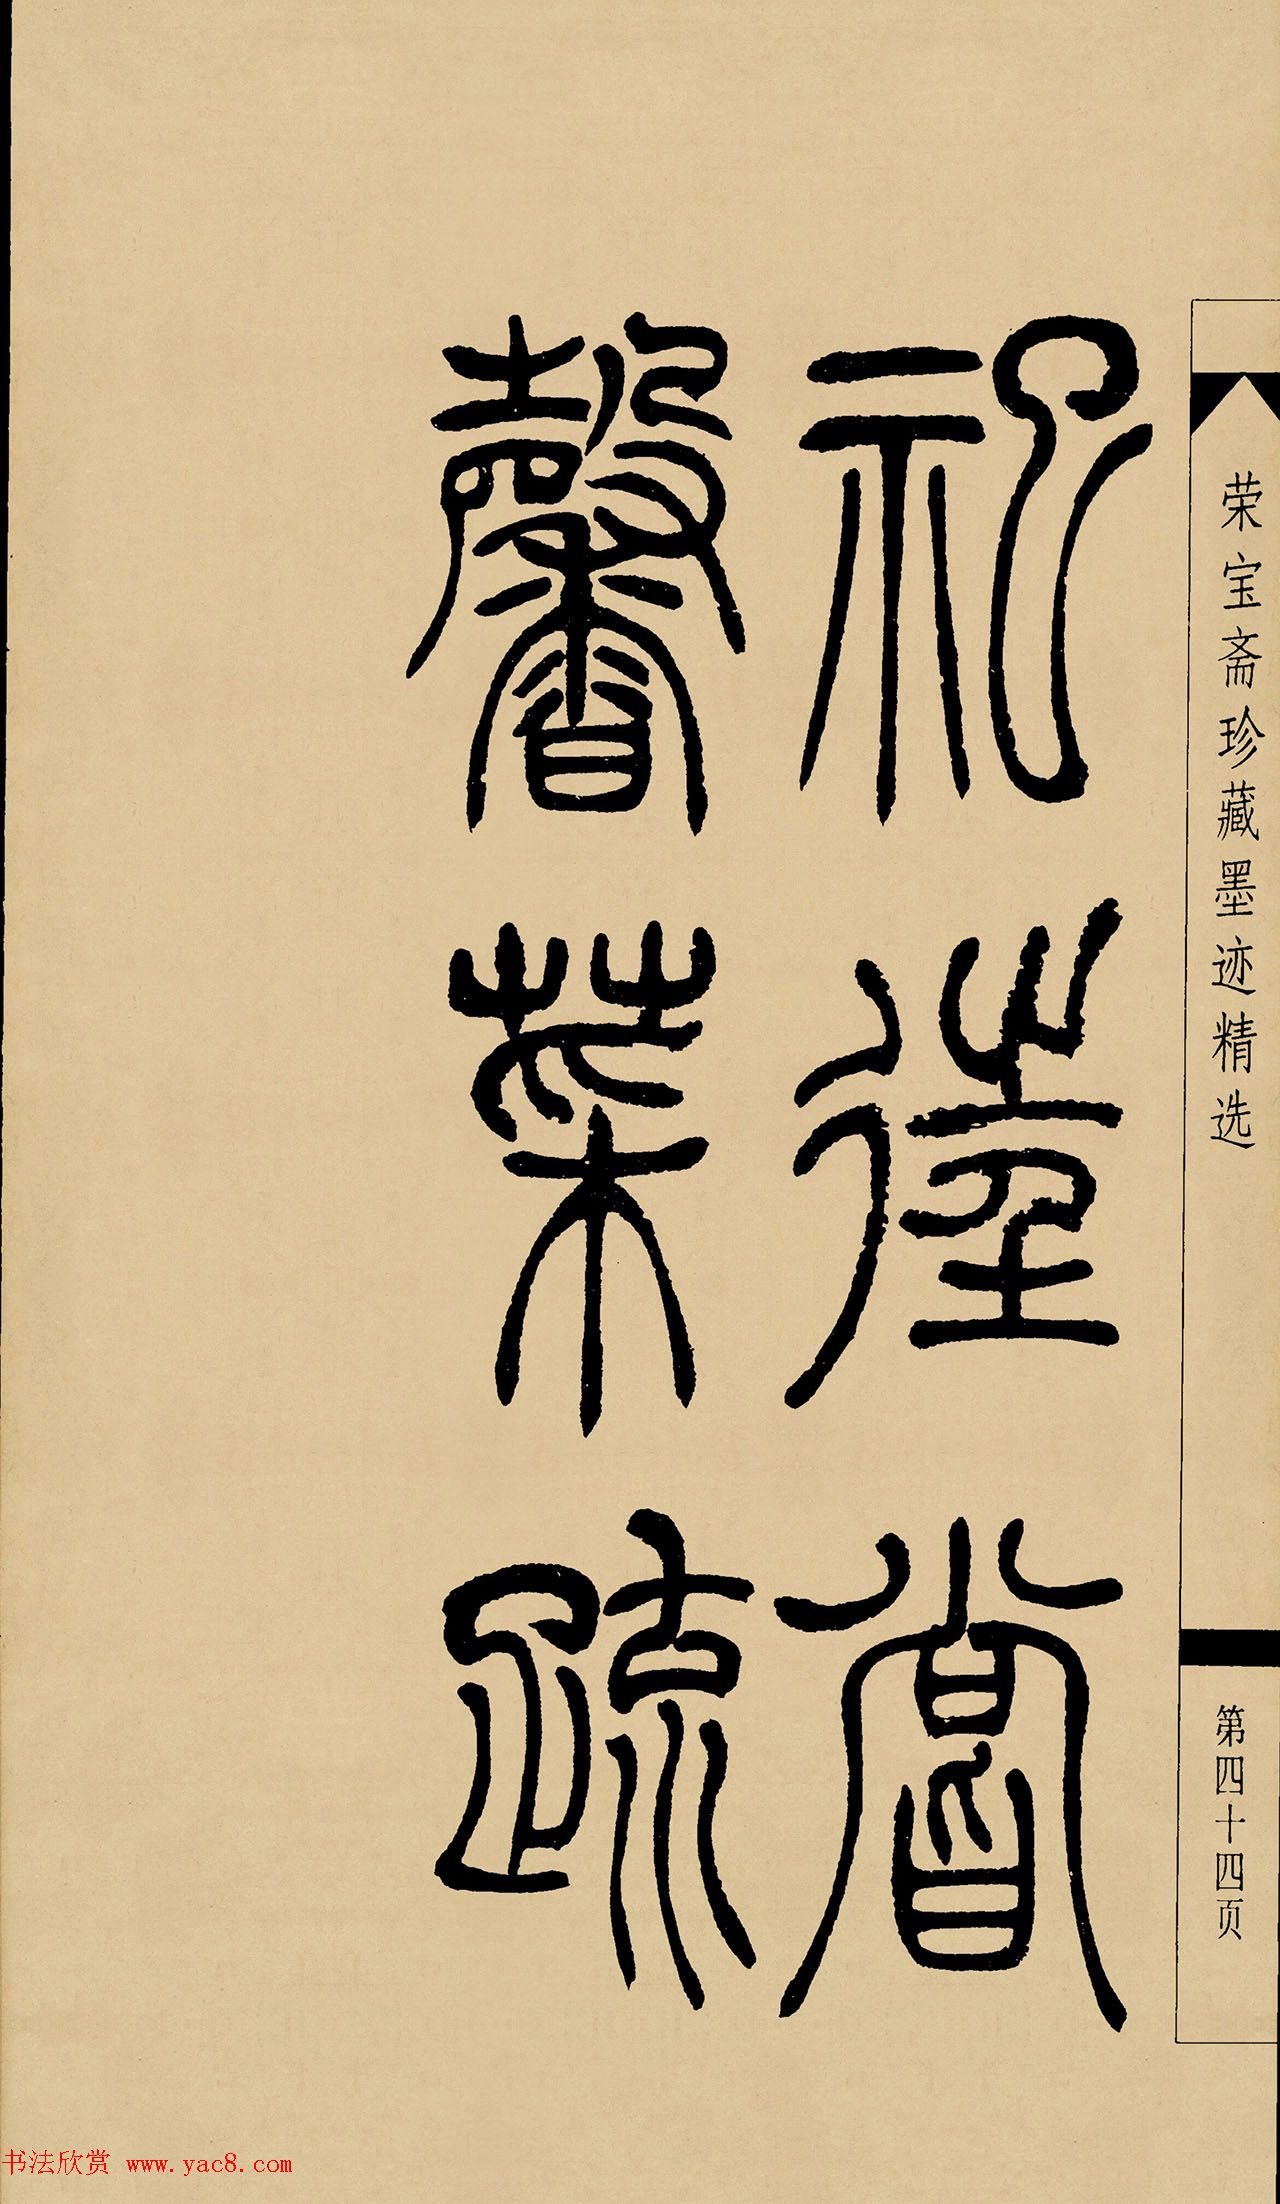 祀嘗
馨菜疏
荣宝斋珍藏墨迹精选
第四十四页
书法欣赏 www.yac8.com